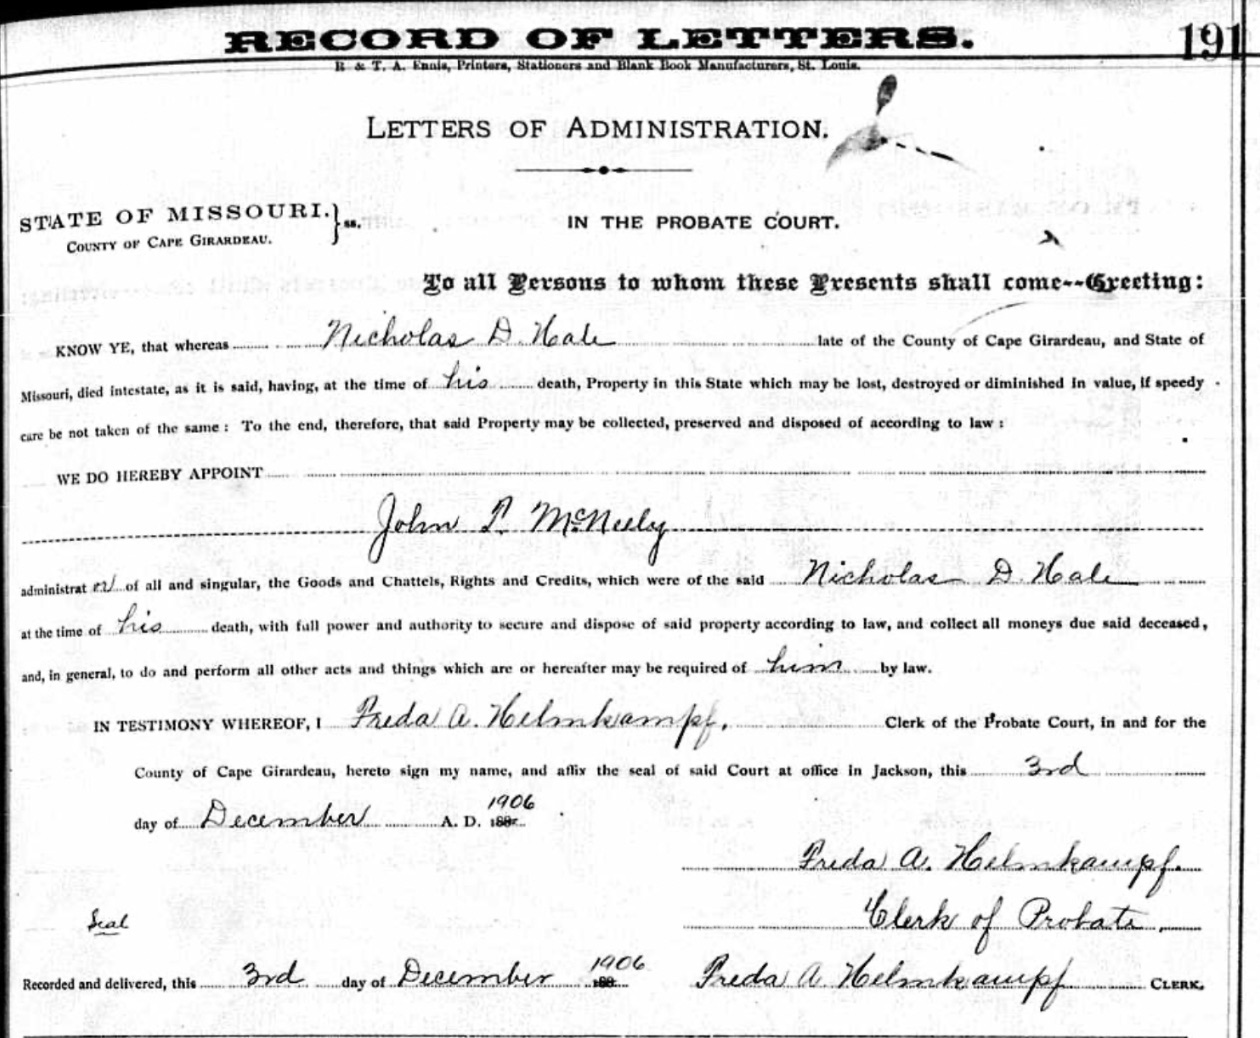 RECORD OF LETTERS. 191
R & T. A. Ennis, Printers, Stationers and Blank Book Manufacturers, St. Louis.
LETTERS OF ADMINISTRATION.
STATE OF MISSOURI. } ss. IN THE PROBATE COURT.
COUNTY OF CAPE GIRARDEAU.
To all Persons to whom these Presents shall come--Greeting:
KNOW YE, that whereas Nicholas D. Hale late of the County of Cape Girardeau, and State of
Missouri, died intestate, as it is said, having, at the time of his death, Property in this State which may be lost, destroyed or diminished in value, if speedy
care be not taken of the same: To the end, therefore, that said Property may be collected, preserved and disposed of according to law:
WE DO HEREBY APPOINT
John P. McNeely
administrator of all and singular, the Goods and Chattels, Rights and Credits, which were of the said Nicholas D. Hale
at the time of his death, with full power and authority to secure and dispose of said property according to law, and collect all moneys due said deceased,
and, in general, to do and perform all other acts and things which are or hereafter may be required of him by law.
IN TESTIMONY WHEREOF, I Freda A. Helmkampf, Clerk of the Probate Court, in and for the
County of Cape Girardeau, hereto sign my name, and affix the seal of said Court at office in Jackson, this 3rd
day of December A. D. 1906
Freda A. Helmkampf.
Seal Clerk of Probate.
Recorded and delivered, this 3rd day of December 1906 Freda A Helmkampf CLERK.